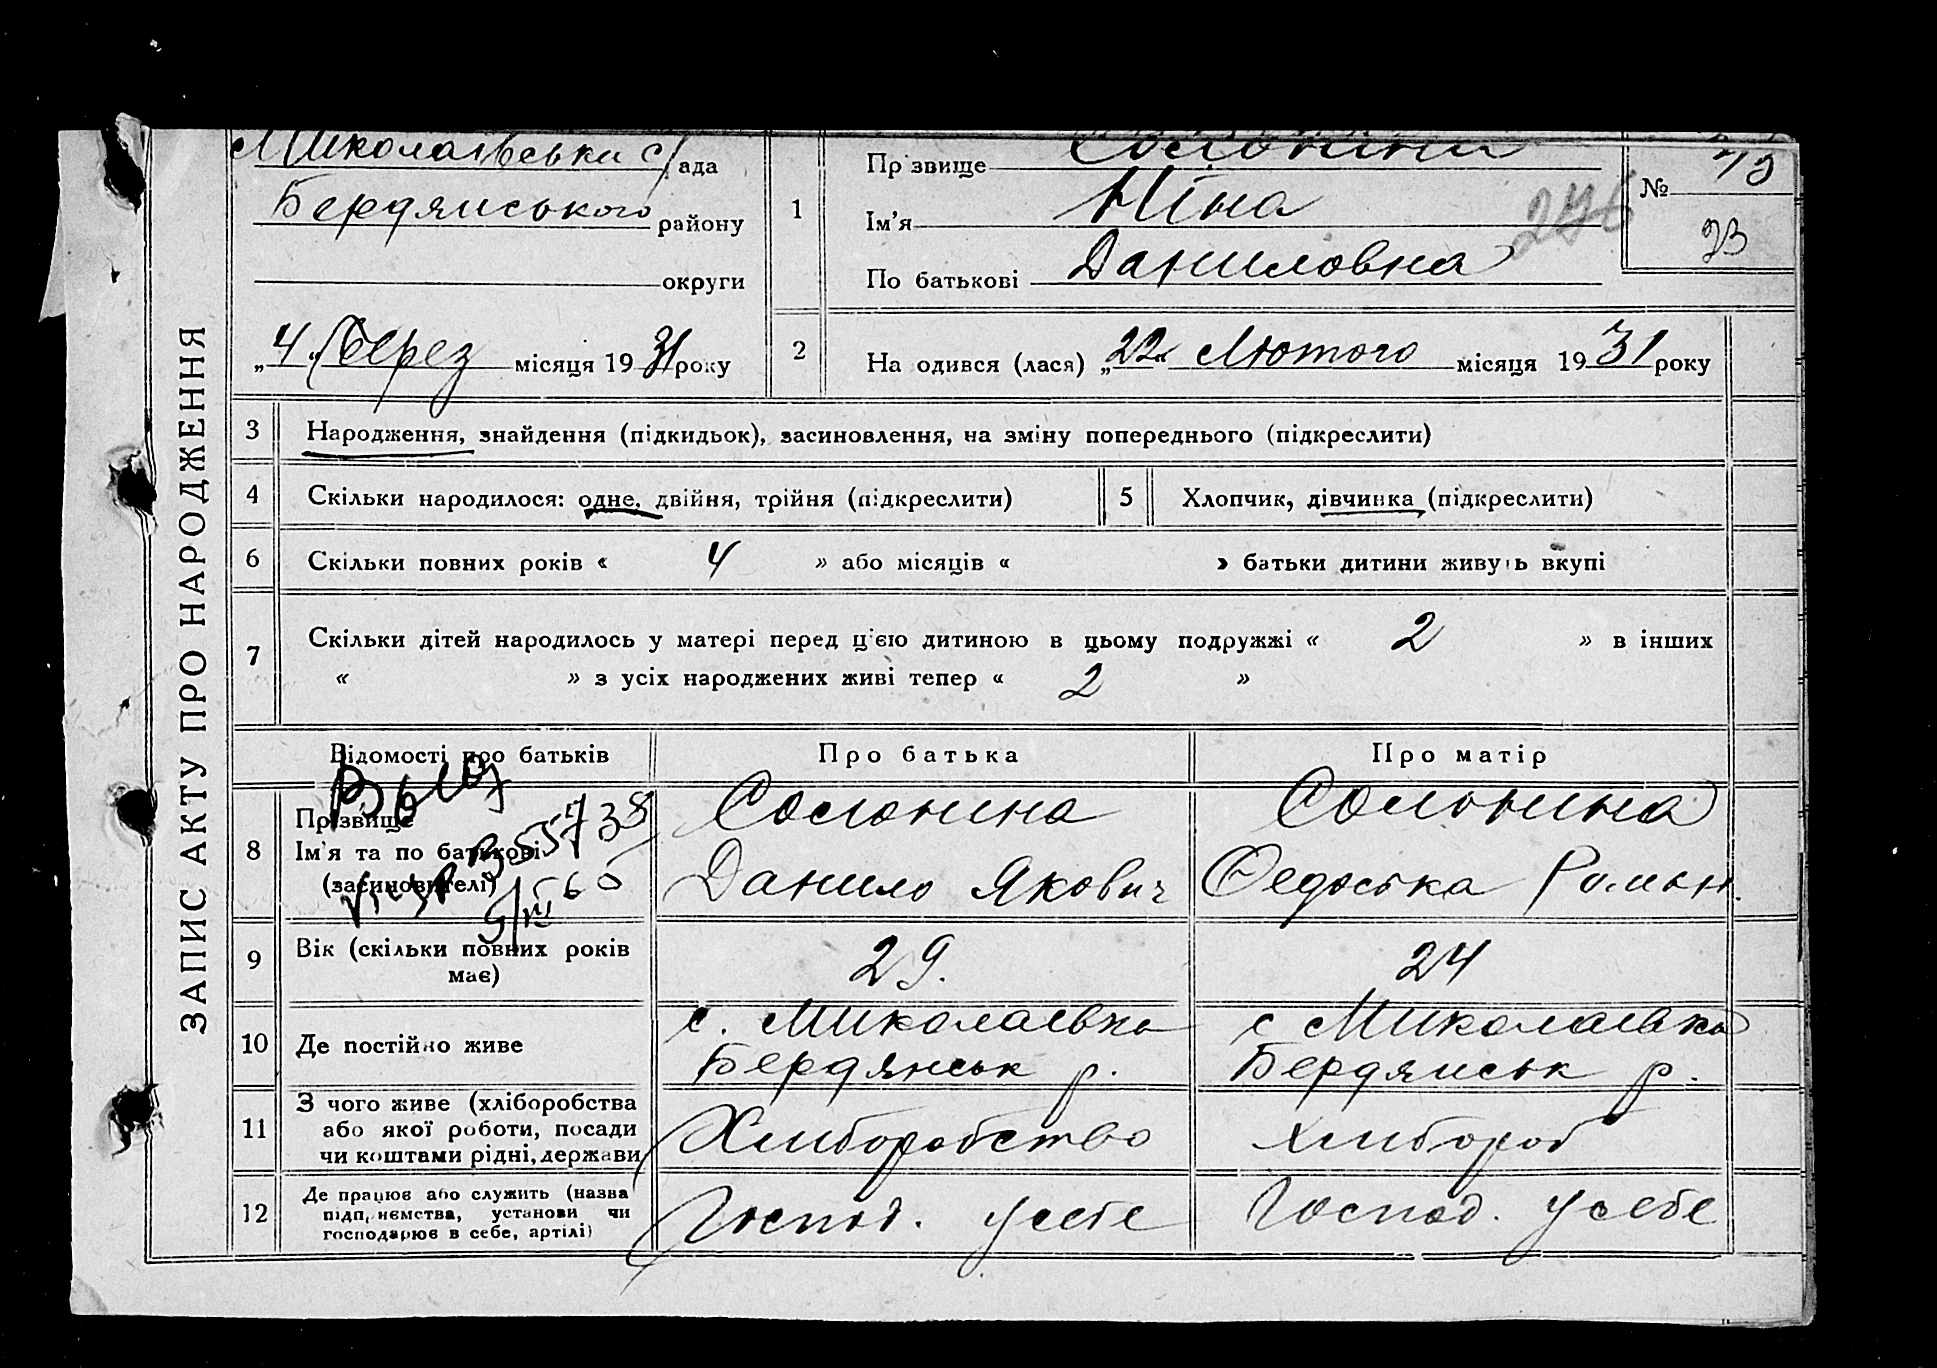 ЗАПИС АКТУ ПРО НАРОДЖЕННЯ
Миколаївська с/рада
Бердянського району
округи
„4“ Берез місяця 1931 року
1
Прізвище Солонина
Ім'я Ніна
По батькові Даниловна
№ 43
23
276
2
Народився (лася) „22“ Лютого місяця 1931 року
3 Народження, знайдення (підкидьок), засиновлення, на зміну попереднього (підкреслити)
4 Скільки народилося: одне, двійня, трійня (підкреслити)
5 Хлопчик, дівчинка (підкреслити)
6 Скільки повних років « 4 » або місяців « » батьки дитини живуть вкупі
7 Скільки дітей народилось у матері перед цією дитиною в цьому подружжі « 2 » в інших
« » з усіх народжених живі тепер « 2 »
Відомості про батьків Про батька Про матір
8 Прізвище
Ім'я та по батькові
(засиновителі)
Солонина
Данило Якович
Солонина
Федоська Роман.
9 Вік (скільки повних років
має)
29.
24
10 Де постійно живе
с. Миколаевка
Бердянськ р.
с Миколаевка
Бердянськ р.
11 З чого живе (хліборобства
або якої роботи, посади
чи коштами рідні, держави
Хлиборобство
хлибороб
12 Де працює або служить (назва
підприємства, установи чи
господарює в себе, артілі)
Господ. у себе
Господ. у себе